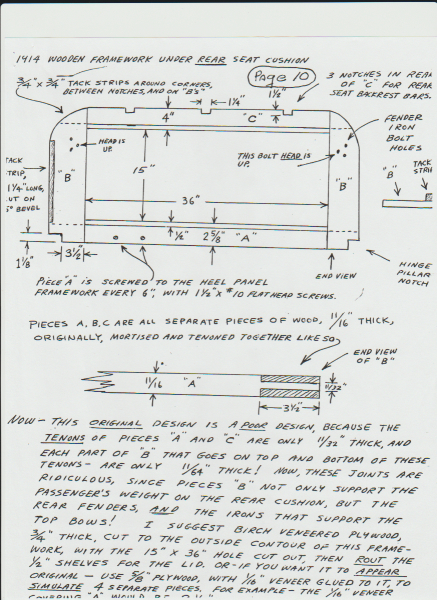 1914 WOODEN FRAMEWORK UNDER REAR SEAT CUSHION
Page 10
3/4" x 3/4" TACK STRIPS AROUND CORNERS,
BETWEEN NOTCHES, AND ON "B's"
3 NOTCHES IN REAR
OF "C" FOR REAR
SEAT BACKREST BARS.
1 1/4"
1 1/2"
4"
"C"
FENDER
IRON
BOLT
HOLES
HEAD IS
UP.
THIS BOLT HEAD IS
UP.
TACK
TRIP,
1 1/4" LONG,
UT ON
BEVEL
"B"
15"
"B"
"B"
TACK
STRI
36"
1/2"
2 5/8"
"A"
1 1/8"
3 1/2"
END VIEW
HINGE
PILLAR
NOTCH
PIECE "A" IS SCREWED TO THE HEEL PANEL
FRAMEWORK EVERY 6", WITH 1 1/2" x #10 FLATHEAD SCREWS.
PIECES A, B, C ARE ALL SEPARATE PIECES OF WOOD, 11/16" THICK,
ORIGINALLY, MORTISED AND TENONED TOGETHER LIKE SO
END VIEW
OF "B"
11/16
"A"
11/32"
3 1/2"
NOW - THIS ORIGINAL DESIGN IS A POOR DESIGN, BECAUSE THE
TENONS OF PIECES "A" AND "C" ARE ONLY 11/32" THICK, AND
EACH PART OF "B" THAT GOES ON TOP AND BOTTOM OF THESE
TENONS - ARE ONLY 11/64" THICK! NOW, THESE JOINTS ARE
RIDICULOUS, SINCE PIECES "B" NOT ONLY SUPPORT THE
PASSENGER'S WEIGHT ON THE REAR CUSHION, BUT THE
REAR FENDERS, AND THE IRONS THAT SUPPORT THE
TOP BOWS! I SUGGEST BIRCH VENEERED PLYWOOD,
3/4" THICK, CUT TO THE OUTSIDE CONTOUR OF THIS FRAME-
WORK, WITH THE 15" X 36" HOLE CUT OUT, THEN ROUT THE
1/2" SHELVES FOR THE LID. OR - IF YOU WANT IT TO APPEAR
ORIGINAL - USE 5/8" PLYWOOD, WITH 1/16" VENEER GLUED TO IT, TO
SIMULATE 4 SEPARATE PIECES. FOR EXAMPLE - THE 1/16" VENEER